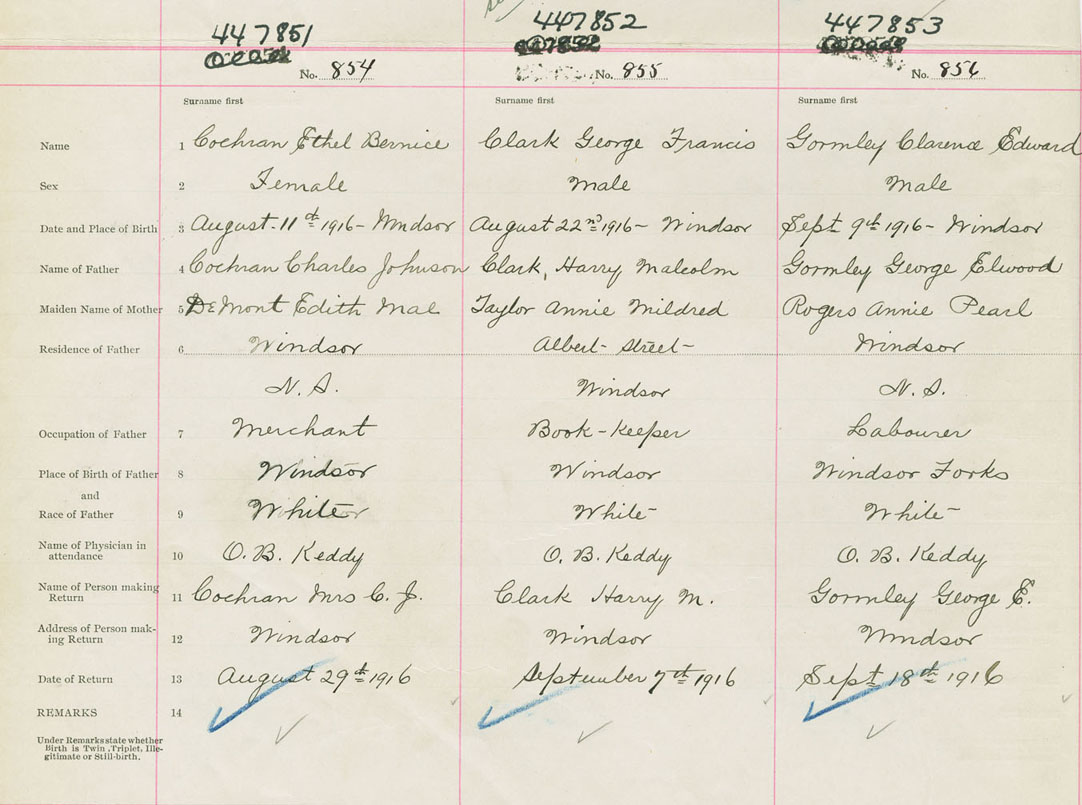 447851 447852 447853
No. 854 No. 855 No. 856
Surname first Surname first Surname first
Name 1 Cochran Ethel Bernice Clark George Francis Gormley Clarence Edward
Sex 2 Female Male Male
Date and Place of Birth 3 August 11th 1916 - Windsor August 22nd 1916 - Windsor Sept 9th 1916 - Windsor
Name of Father 4 Cochran Charles Johnson Clark, Harry Malcolm Gormley George Elwood
Maiden Name of Mother 5 DeMont Edith Mae Taylor Annie Mildred Rogers Annie Pearl
Residence of Father 6 Windsor Albert Street - Windsor
N.S. Windsor N.S.
Occupation of Father 7 Merchant Book-Keeper Labourer
Place of Birth of Father 8 Windsor Windsor Windsor Forks
and
Race of Father 9 White White White
Name of Physician in
attendance 10 O. B. Keddy O. B. Keddy O. B. Keddy
Name of Person making
Return 11 Cochran Mrs C. J. Clark Harry M. Gormley George E.
Address of Person mak-
ing Return 12 Windsor Windsor Windsor
Date of Return 13 August 29th 1916 September 7th 1916 Sept 18th 1916
REMARKS 14
Under Remarks state whether
Birth is Twin, Triplet, Ille-
gitimate or Still-birth.